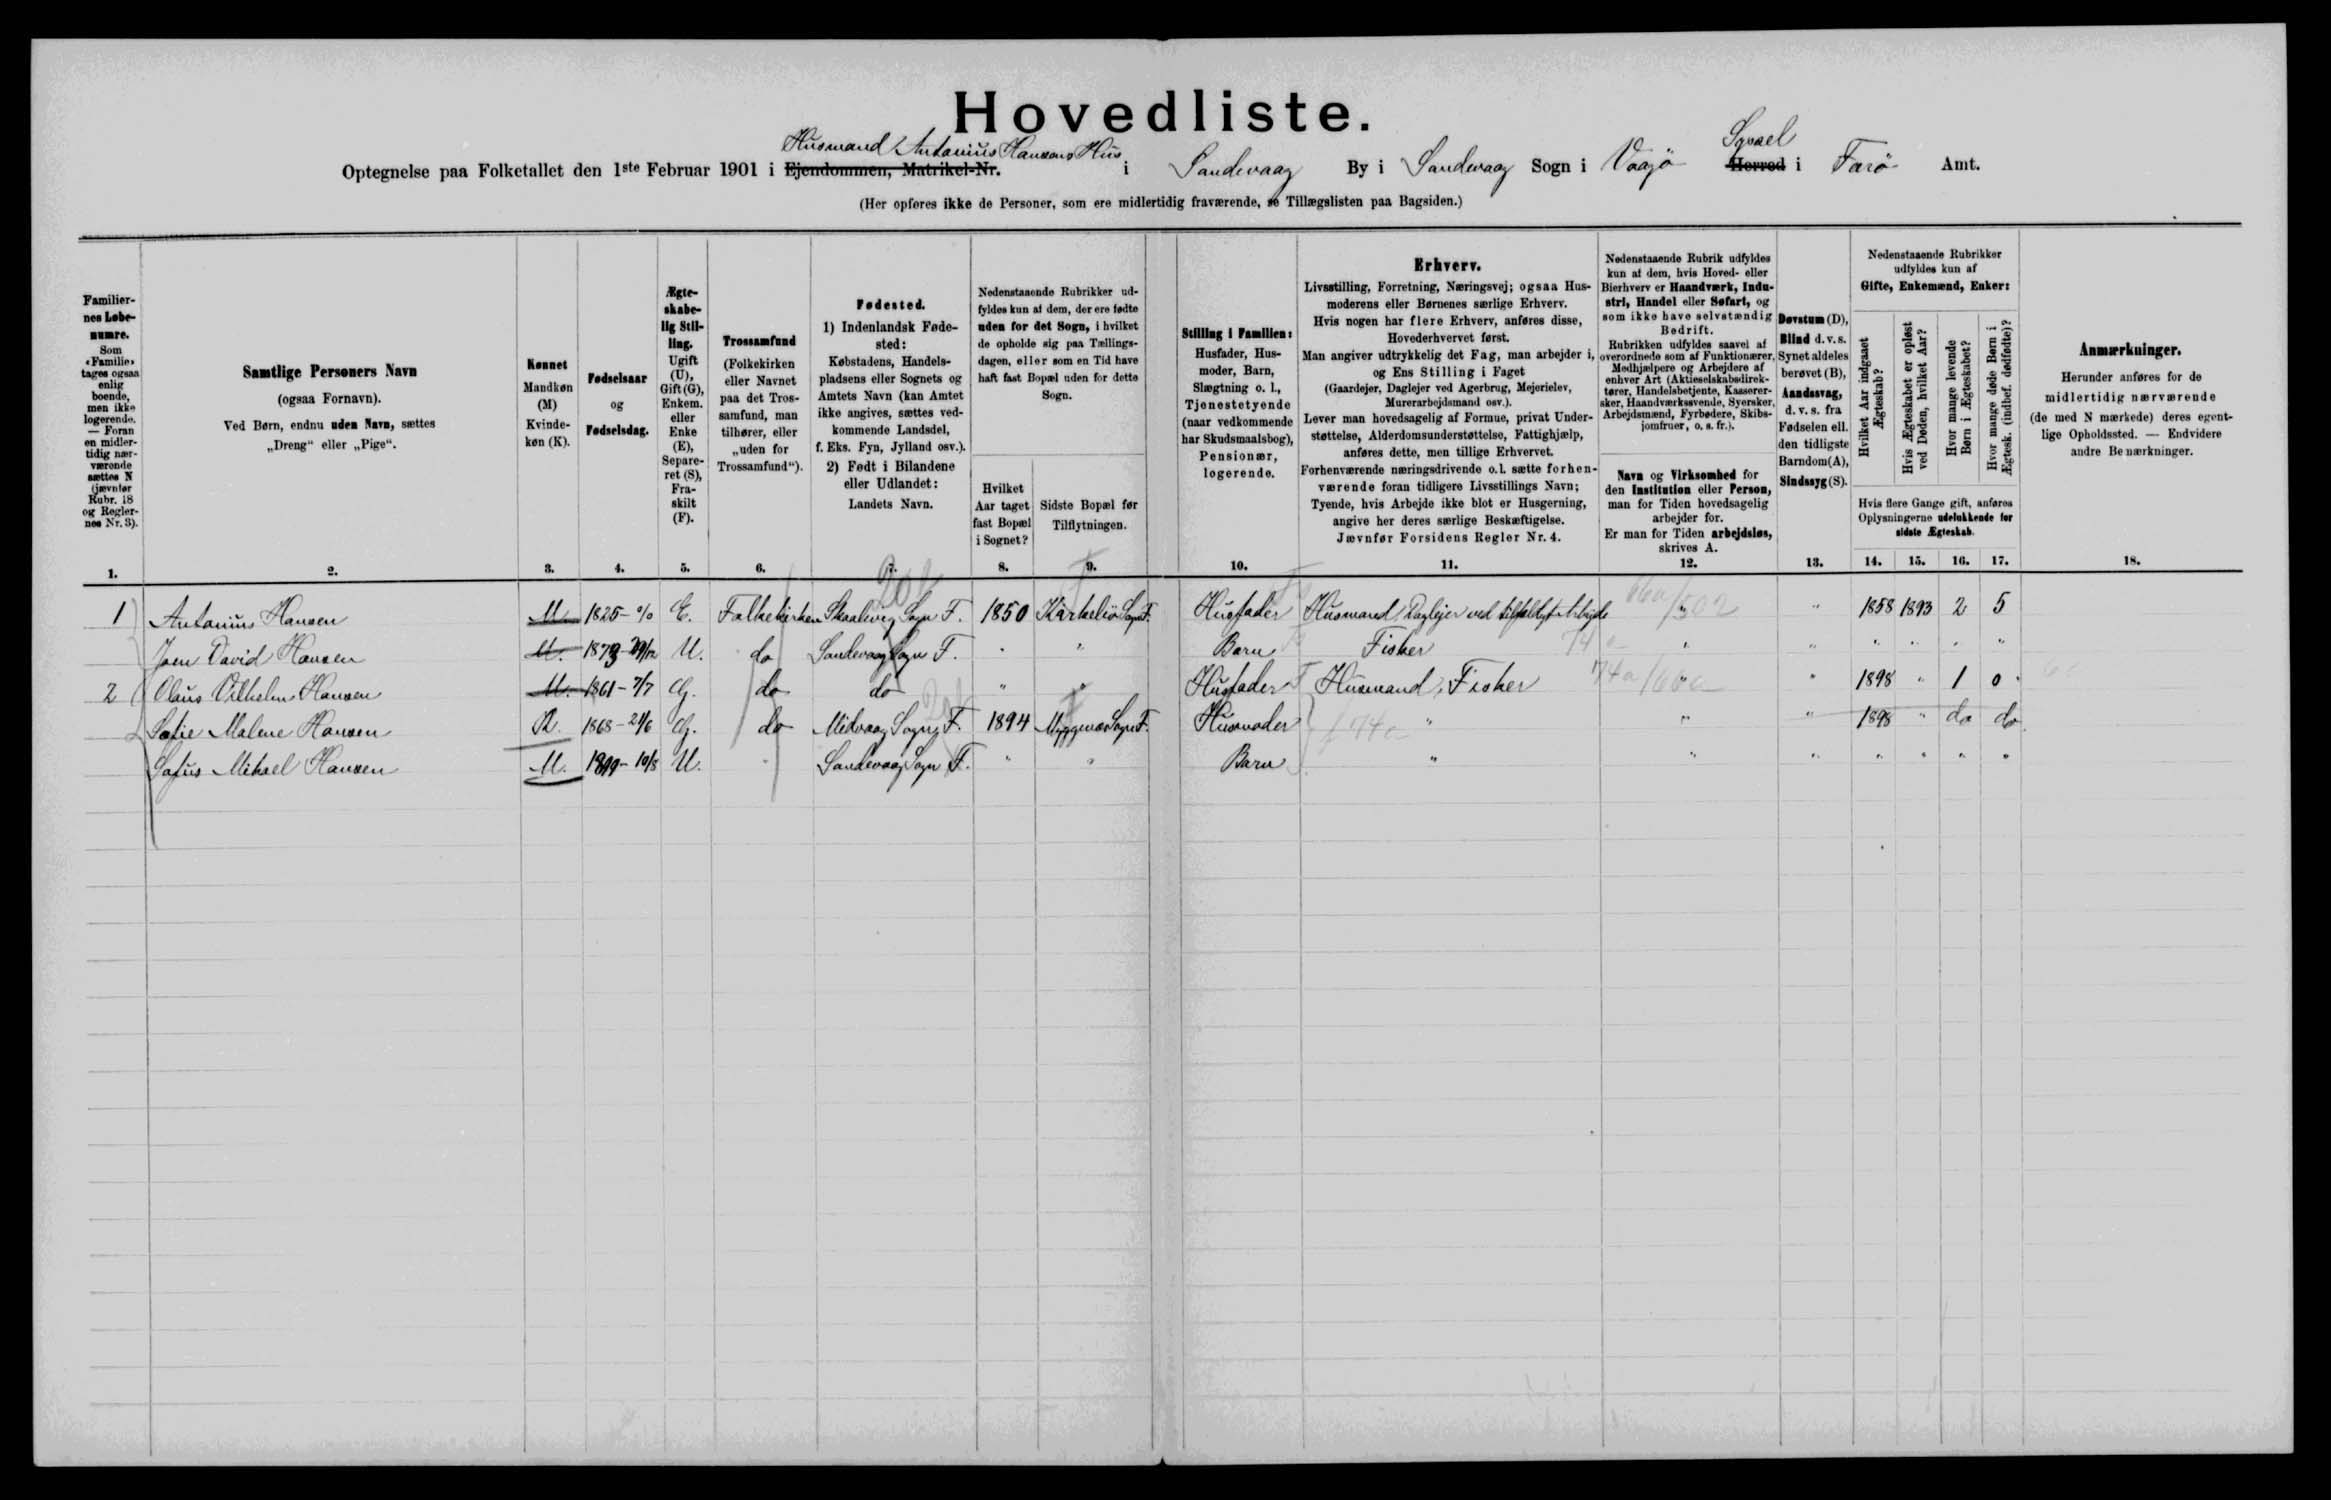 Hovedliste.
Husmand Antonius Hansens Hus Syssel
Optegnelse paa Folketallet den 1ste Februar 1901 i Ejendommen, Matrikel-Nr. i Sandevaag By i Sandevaag Sogn i Vaagö Herred i Færö Amt.
(Her opføres ikke de Personer, som ere midlertidig fraværende, se Tillægslisten paa Bagsiden.)
Familiernes Løbenumre.
Som «Familie» tages ogsaa enlig boende, men ikke logerende. — Foran en midlertidig nærværende sættes N (jævnfør Rubr. 18 og Reglernes Nr. 3).
Samtlige Personers Navn
(ogsaa Fornavn).
Ved Børn, endnu uden Navn, sættes
„Dreng“ eller „Pige“.
Kønnet
Mandkøn
(M)
Kvinde-
køn (K).
Fødselsaar
og
Fødselsdag.
Ægte-
skabe-
lig Stil-
ling.
Ugift
(U),
Gift (G),
Enkem.
eller
Enke
(E),
Separe-
ret (S),
Fra-
skilt
(F).
Trossamfund
(Folkekirken
eller Navnet
paa det Tros-
samfund, man
tilhører, eller
„uden for
Trossamfund“).
Fødested.
1) Indenlandsk Føde-
sted:
Købstadens, Handels-
pladsens eller Sognets og
Amtets Navn (kan Amtet
ikke angives, sættes ved-
kommende Landsdel,
f. Eks. Fyn, Jylland osv.).
2) Født i Bilandene
eller Udlandet:
Landets Navn.
Nedenstaaende Rubrikker ud-
fyldes kun af dem, der ere fødte
uden for det Sogn, i hvilket
de opholde sig paa Tællings-
dagen, eller som en Tid have
haft fast Bopæl uden for dette
Sogn.
Hvilket
Aar taget
fast Bopæl
i Sognet?
Sidste Bopæl før
Tilflytningen.
Stilling i Familien:
Husfader, Hus-
moder, Barn,
Slægtning o. l.,
Tjenestetyende
(naar vedkommende
har Skudsmaalsbog),
Pensionær,
logerende.
Erhverv.
Livsstilling, Forretning, Næringsvej; ogsaa Hus-
moderens eller Børnenes særlige Erhverv.
Hvis nogen har flere Erhverv, anføres disse,
Hovederhvervet først.
Man angiver udtrykkelig det Fag, man arbejder i,
og Ens Stilling i Faget
(Gaardejer, Daglejer ved Agerbrug, Mejerielev,
Murerarbejdsmand osv.).
Lever man hovedsagelig af Formue, privat Under-
støttelse, Alderdomsunderstøttelse, Fattighjælp,
anføres dette, men tillige Erhvervet.
Forhenværende næringsdrivende o.l. sætte forhen-
værende foran tidligere Livsstillings Navn;
Tyende, hvis Arbejde ikke blot er Husgerning,
angive her deres særlige Beskæftigelse.
Jævnfør Forsidens Regler Nr. 4.
Nedenstaaende Rubrik udfyldes
kun af dem, hvis Hoved- eller
Bierhverv er Haandværk, Indu-
stri, Handel eller Søfart, og
som ikke have selvstændig
Bedrift.
Rubrikken udfyldes saavel af
overordnede som af Funktionærer,
Medhjælpere og Arbejdere af
enhver Art (Aktieselskabsdirek-
tører, Handelsbetjente, Kasserer-
sker, Haandværkssvende, Syersker,
Arbejdsmænd, Fyrbødere, Skibs-
jomfruer, o. s. fr.).
Navn og Virksomhed for
den Institution eller Person,
man for Tiden hovedsagelig
arbejder for.
Er man for Tiden arbejdsløs,
skrives A.
Døvstum (D),
Blind d. v. s.
Synet aldeles
berøvet (B),
Aandssvag,
d. v. s. fra
Fødselen ell.
den tidligste
Barndom (A),
Sindssyg (S).
Nedenstaaende Rubrikker
udfyldes kun af
Gifte, Enkemænd, Enker:
Hvilket Aar indgaaet Ægteskab?
Hvis Ægteskabet er opløst ved Døden, hvilket Aar?
Hvor mange levende Børn i Ægteskabet?
Hvor mange døde Børn i Ægtesk. (indbef. dødfødte)?
Hvis flere Gange gift, anføres
Oplysningerne udelukkende for
sidste Ægteskab.
Anmærkninger.
Herunder anføres for de
midlertidig nærværende
(de med N mærkede) deres egent-
lige Opholdssted. — Endvidere
andre Bemærkninger.
1. 2. 3. 4. 5. 6. 7. 8. 9. 10. 11. 12. 13. 14. 15. 16. 17. 18.
1 Antonius Hansen M. 1825 - 0/0 E. Folkekirken Skaalevig Sogn F. 1850 Sogn F. Husfader Husmand, Daglejer ved tilfældigt Arbejde " " 1858 1893 2 5
Joen David Hansen M. 1873 - 29/12 U. do Sandevaag Sogn F. " " Barn Fisker " " " " " "
2 Olaus Vilhelm Hansen M. 1861 - 7/7 G. do do " " Husfader Husmand, Fisker " " 1898 " 1 0
Sofie Malene Hansen K. 1868 - 21/6 G. do Midvaag Sogn F. 1894 Myggenæs Sogn F. Husmoder " " " 1898 " do do
Sofus Mikael Hansen M. 1899 - 10/8 U. " Sandevaag Sogn F. " " Barn " " " " " " "